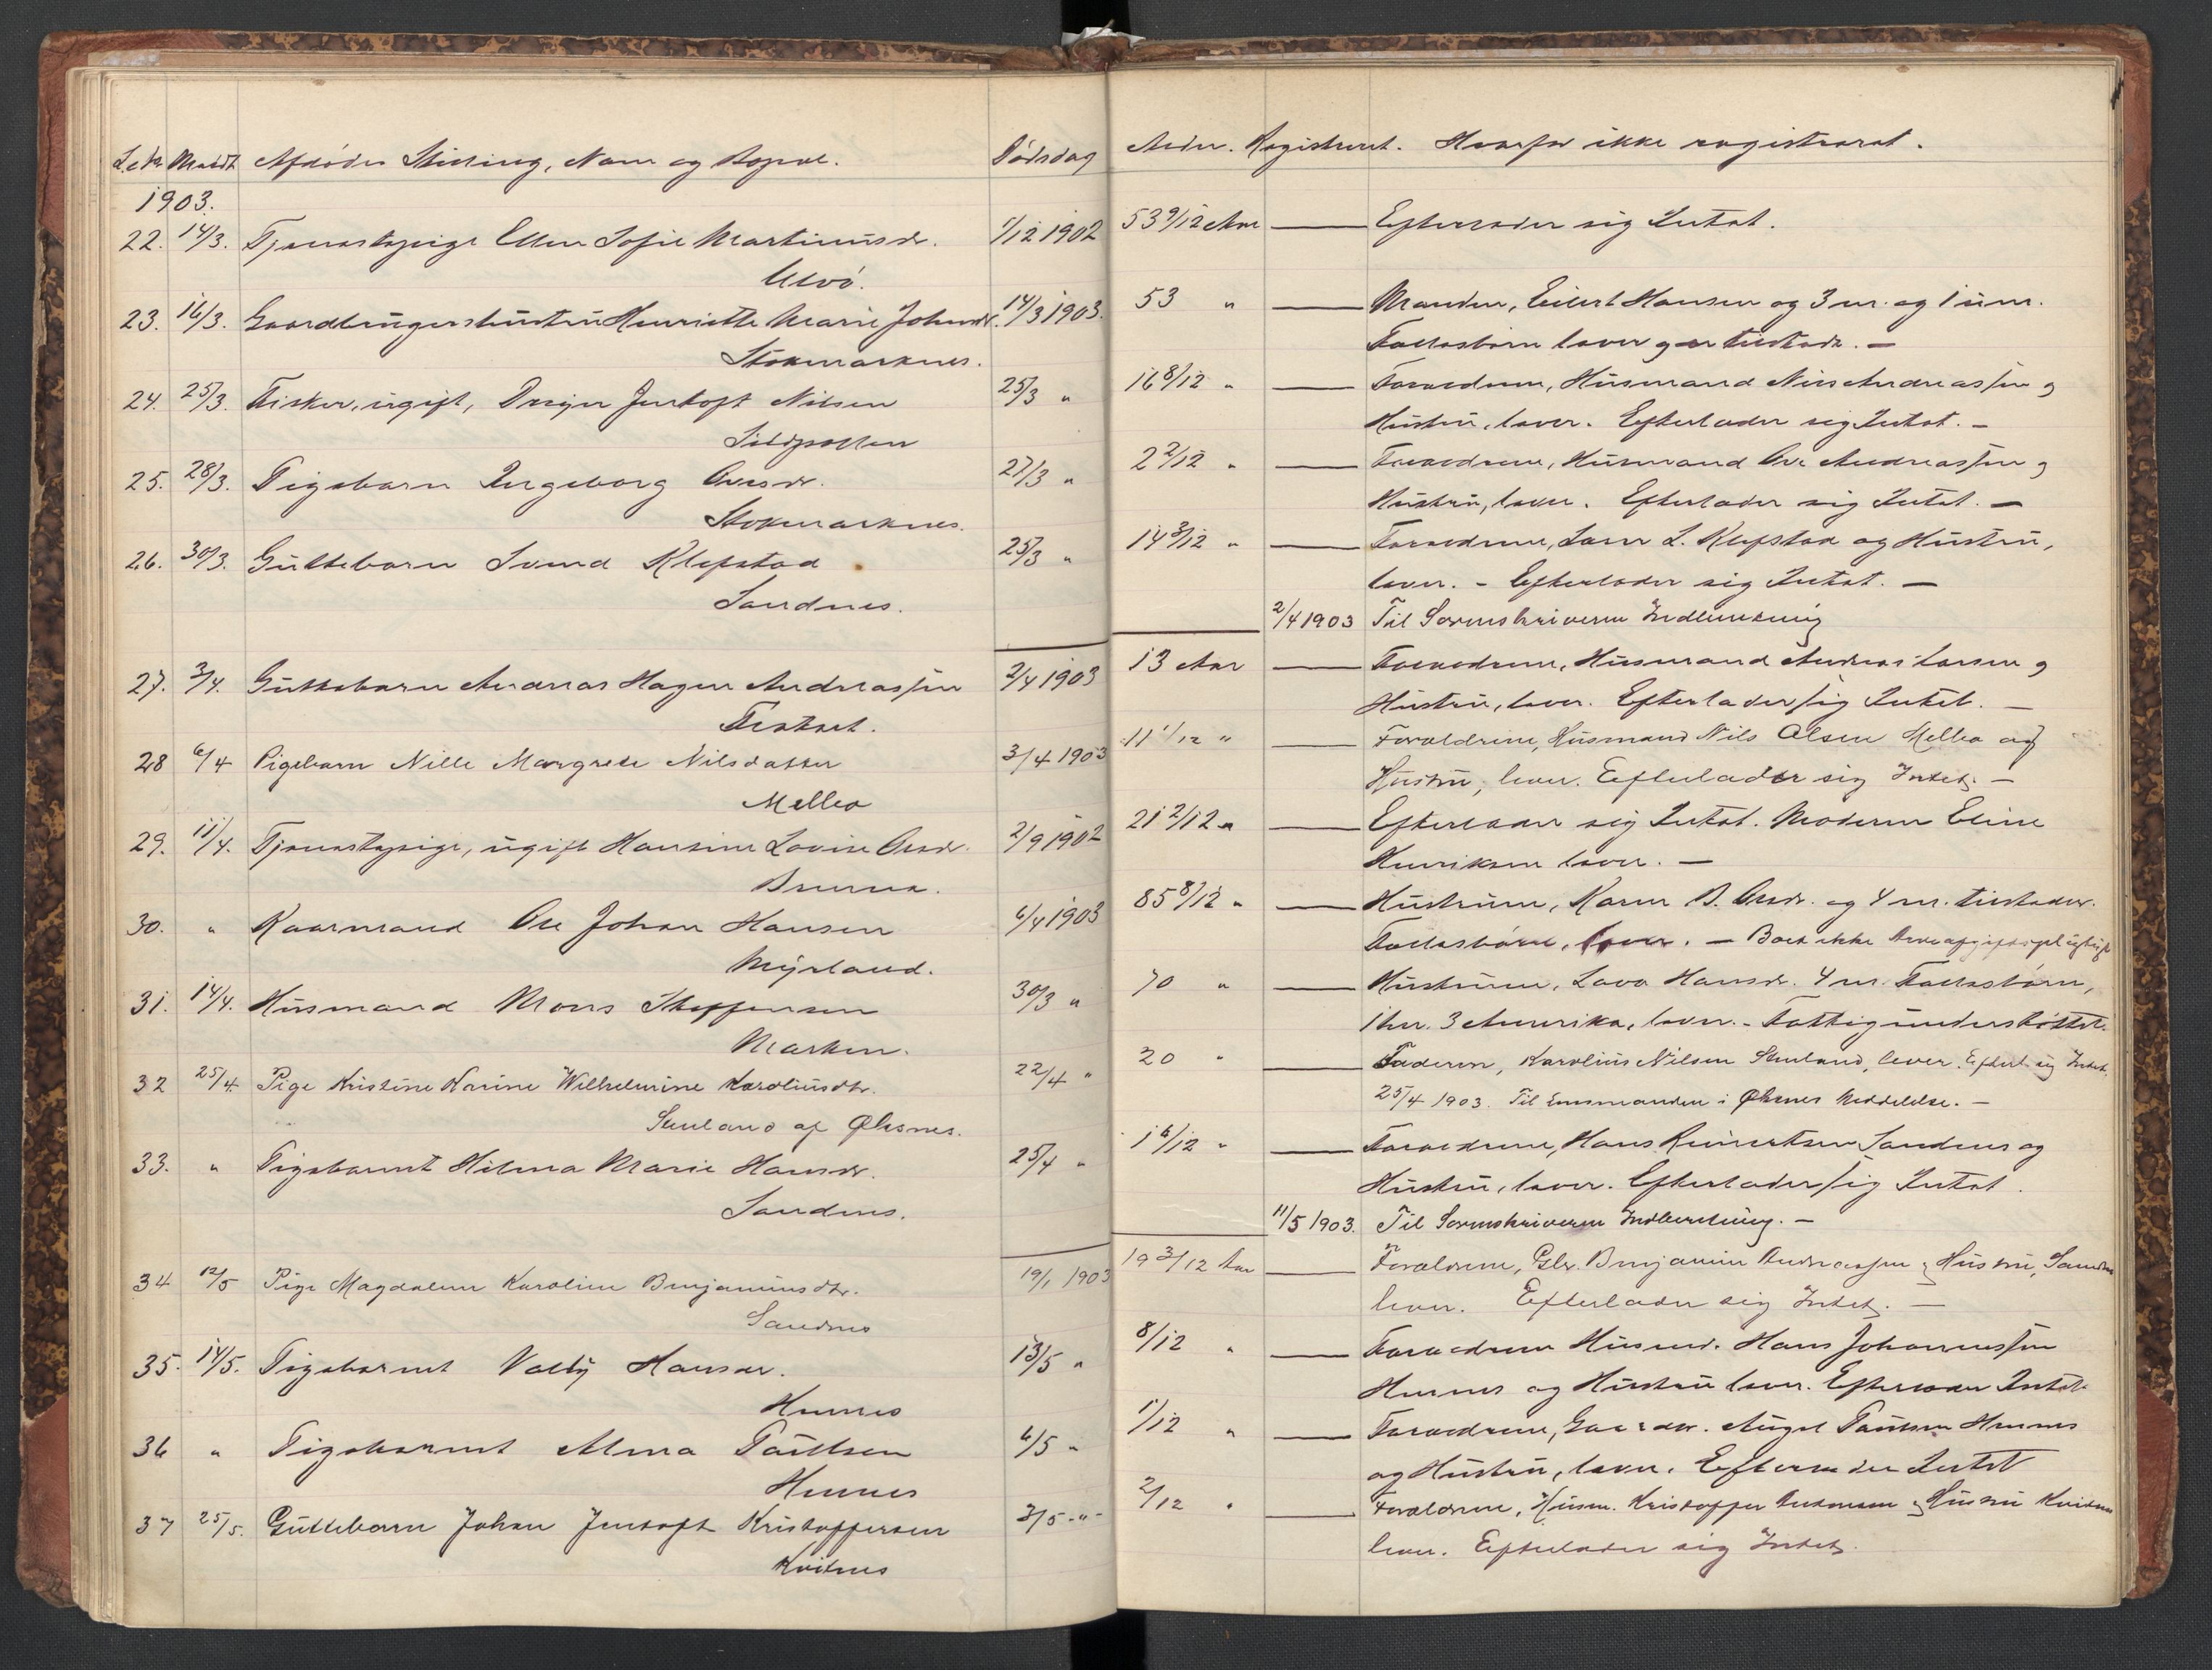 L.Nr. Meldt. Afdødes Stilling, Navn og Bopæl. Dødsdag
1903.
22. 14/3. Tjenestepige Ellen Sofie Martinusdr. 1/12 1902
Ulvø.
23. 16/3. Gaardbrugerhustru Henriette Marie Johnsdr. 14/3 1903.
Stokmarknes.
24. 25/3. Fisker, ugift, Dreyer Jentoft Nilsen 25/3 "
Sildpollen
25. 28/3. Pigebarn Ingeborg Olesdr. 27/3 "
Stokmarknes.
26. 30/3. Guttebarn Svend Klepstad 25/3 "
Sandnes.
27. 3/4. Guttebarn Andreas Hagen Andreassen 2/4 1903
28 6/4 Pigebarn Nille Margrete Nilsdatter 3/4 1903
Melbo
29. 11/4. Tjenestepige, ugift Hansine Lovise Olsdr. 2/9 1902
30. " Kaarmand Ole Johan Hansen 6/4 1903
Myrland.
31. 14/4. Husmand Mons Steffensen 30/3 "
Marken.
32 25/4. Pige Kristine Karine Wilhelmine Karoliusdtr. 22/4 "
af Øksnes.
33. " Pigebarnet Hilma Marie Hansdr. 25/4 "
Sandnes.
34 12/5 Pige Magdalene Karoline Benjaminsdtr. 19/1 1903
Sandnes
35. 14/5. Pigebarnet Valby Hansdr. 13/5 "
Hennes
36 " Pigebarnet Alma Paulsen 6/5 "
Hennes
37 25/5. Guttebarn Johan Jentoft Kristoffersen 3/5 - " -
Kvitnes
Alder. Registreret. Hvorfor ikke registreret.
53 9/12 Aar — Efterlader sig Intet.
53 " — Manden, Eilert Hansen og 3 m. og 1 um.
Fællesbørn lever og er tilstede. —
16 8/12 " — Forældrene, Husmand Nils Andreassen og
Hustru, lever. Efterlader sig Intet. —
2 2/12 " — Forældrene, Husmand Ole Andreassen og
Hustru, lever. Efterlader sig Intet. —
14 3/12 " — Forældrene, L. Klepstad og Hustru,
lever. - Efterlader sig Intet. —
2/4 1903 Til Sorenskriveren Indberetning
13 Aar — Forældrene, Husmand Andreas Larsen og
Hustru, lever. Efterlader sig Intet. —
11 1/12 " — Forældrene, Husmand Nils Olsen Melbo og
Hustru, lever. Efterlader sig Intet. —
21 2/12 " — Efterlader sig Intet. Moderen Eline
Henriksen lever. —
85 8/12 " — Hustruen, Karen B. Olsdr. og 4 m. tilstedev.
Fællesbørn, lever. — Boet ikke Arveafgiftspligtigt
70 " — Hustruen, Lava Hansdr. 4 m. Fællesbørn,
1 her. 3 Amerika, lever. - Fattigunderstøttet.
20 " — Faderen, Karolius Nilsen lever. Efterl. sig Intet.
25/4 1903. Til Lensmanden i Øksnes Meddelelse. —
1 6/12 " — Forældrene, Hans Reinertsen Sandnes og
Hustru, lever. Efterlader sig Intet.
11/5 1903. Til Sorenskriveren Indberetning. —
19 3/12 Aar — Forældrene, Gbr. Benjamin Andreassen og Hustru, Sandnes
lever. Efterlader sig Intet. —
8/12 " — Forældrene Husmd. Hans Johannessen
Hennes og Hustru lever. Efterlader Intet.
1/12 " — Forældrene, Gaardbr. Angel Paulsen Hennes
og Hustru, lever. Efterlader Intet
2/12 " — Forældrene, Husm. Kristoffer og Hustru Kvitnes
lever. Efterlader sig Intet.